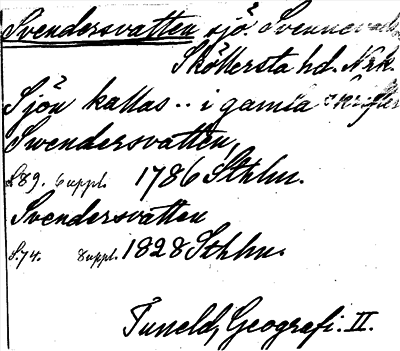 Svendersvatten sjö. Svenne
Sköllersta hd. Nrk.
Sjön kallas .. i gamla skrifter
Swendersvatten,
S.89. 6 uppl. 1786 Sthlm.
Svendersvatten
S.74. 8 uppl. 1828 Sthlm.
Tuneld, Geografi. II.